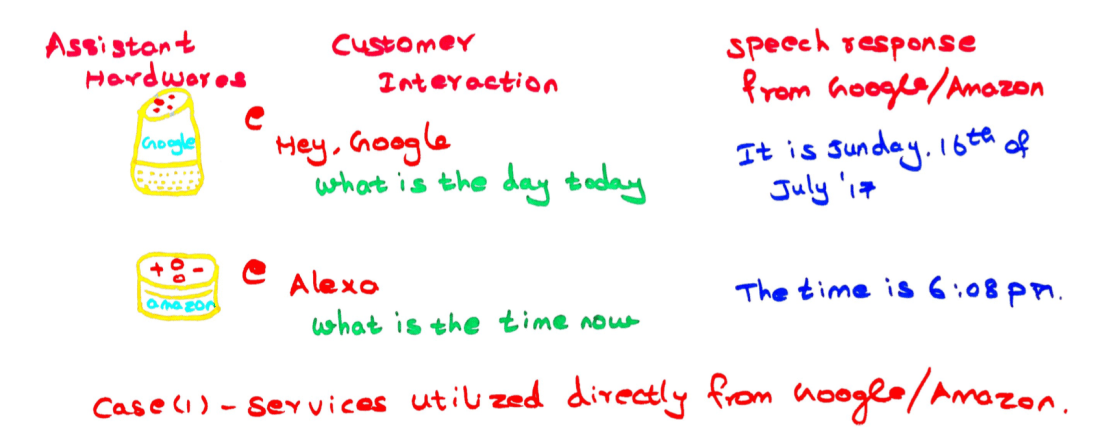 Assistant Hardwares
Customer Interaction
speech response from Google/Amazon
Google
Hey, Google
what is the day today
It is Sunday, 16th of July '17
+ -
amazon
Alexa
what is the time now
The time is 6:08 pm.
Case(1) - services utilized directly from Google/Amazon.